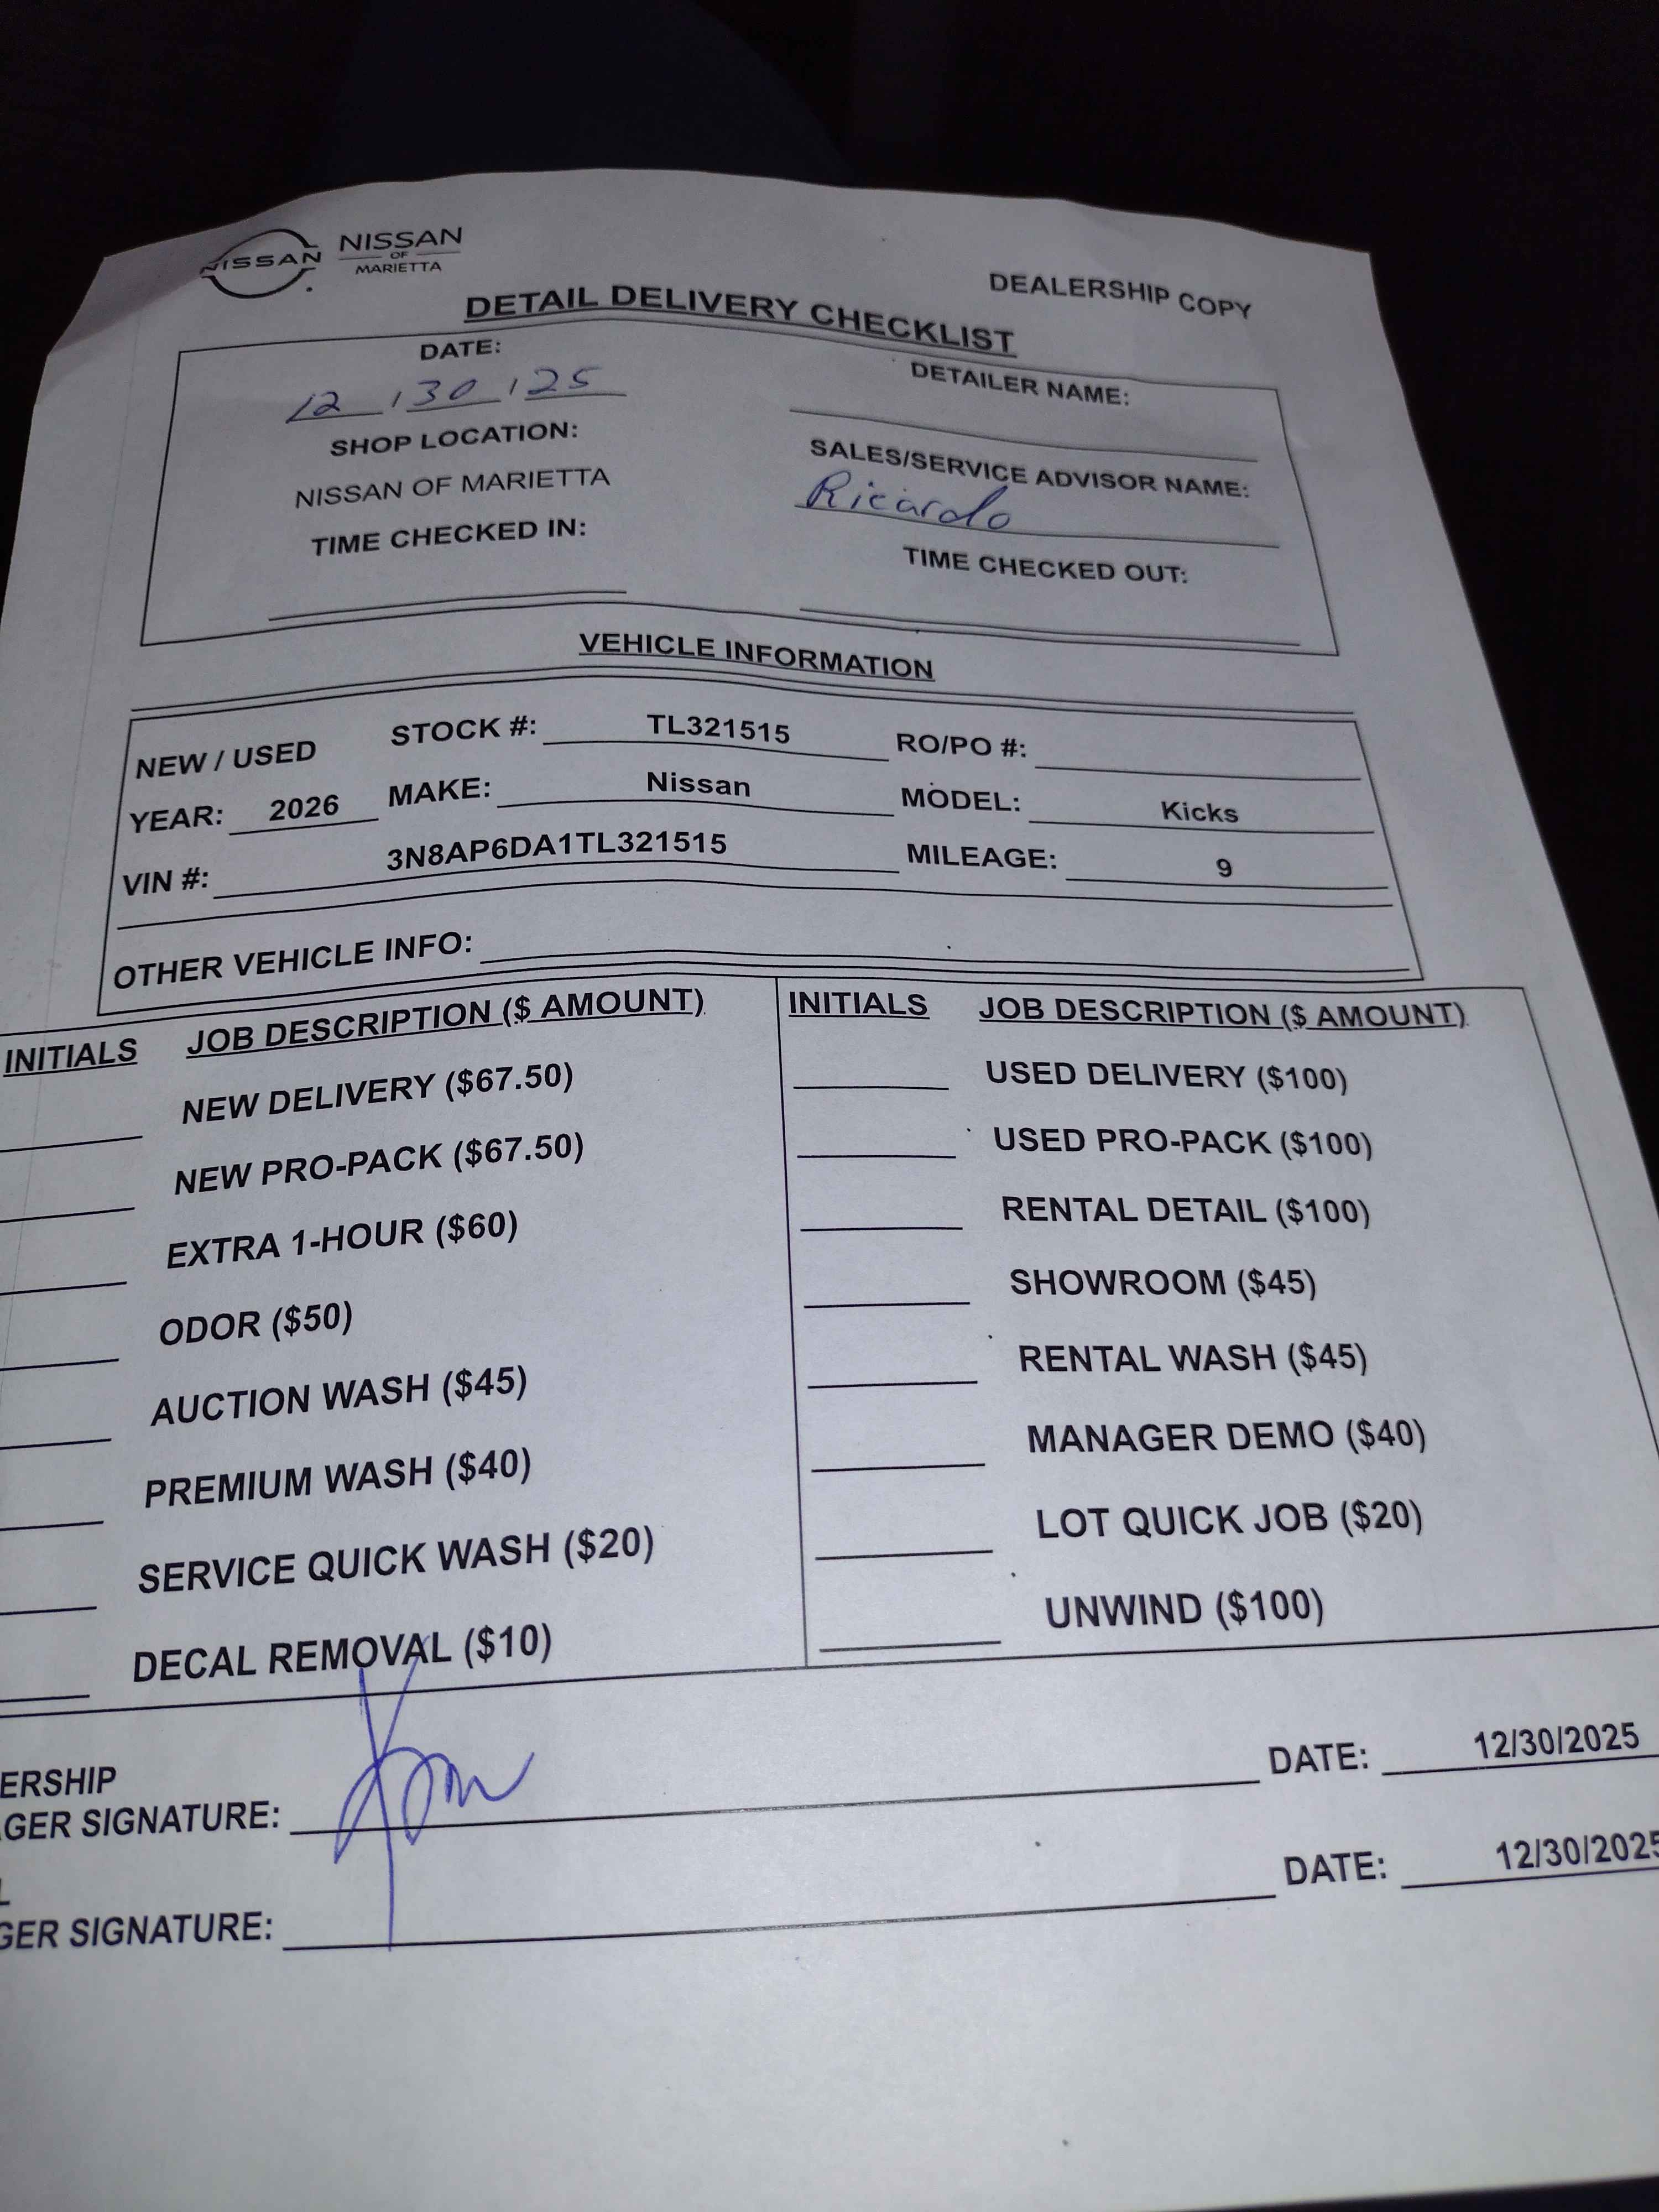 NISSAN NISSAN OF MARIETTA
DEALERSHIP COPY
DETAIL DELIVERY CHECKLIST
DATE: DETAILER NAME:
12 / 30 / 25
SHOP LOCATION: SALES/SERVICE ADVISOR NAME:
NISSAN OF MARIETTA Ricardo
TIME CHECKED IN: TIME CHECKED OUT:
VEHICLE INFORMATION
NEW / USED STOCK #: TL321515 RO/PO #:
YEAR: 2026 MAKE: Nissan MODEL: Kicks
VIN #: 3N8AP6DA1TL321515 MILEAGE: 9
OTHER VEHICLE INFO:
INITIALS JOB DESCRIPTION ($ AMOUNT) INITIALS JOB DESCRIPTION ($ AMOUNT)
NEW DELIVERY ($67.50) USED DELIVERY ($100)
NEW PRO-PACK ($67.50) USED PRO-PACK ($100)
EXTRA 1-HOUR ($60) RENTAL DETAIL ($100)
ODOR ($50) SHOWROOM ($45)
AUCTION WASH ($45) RENTAL WASH ($45)
PREMIUM WASH ($40) MANAGER DEMO ($40)
SERVICE QUICK WASH ($20) LOT QUICK JOB ($20)
DECAL REMOVAL ($10) UNWIND ($100)
ERSHIP
GER SIGNATURE: DATE: 12/30/2025
L
GER SIGNATURE: DATE: 12/30/2025